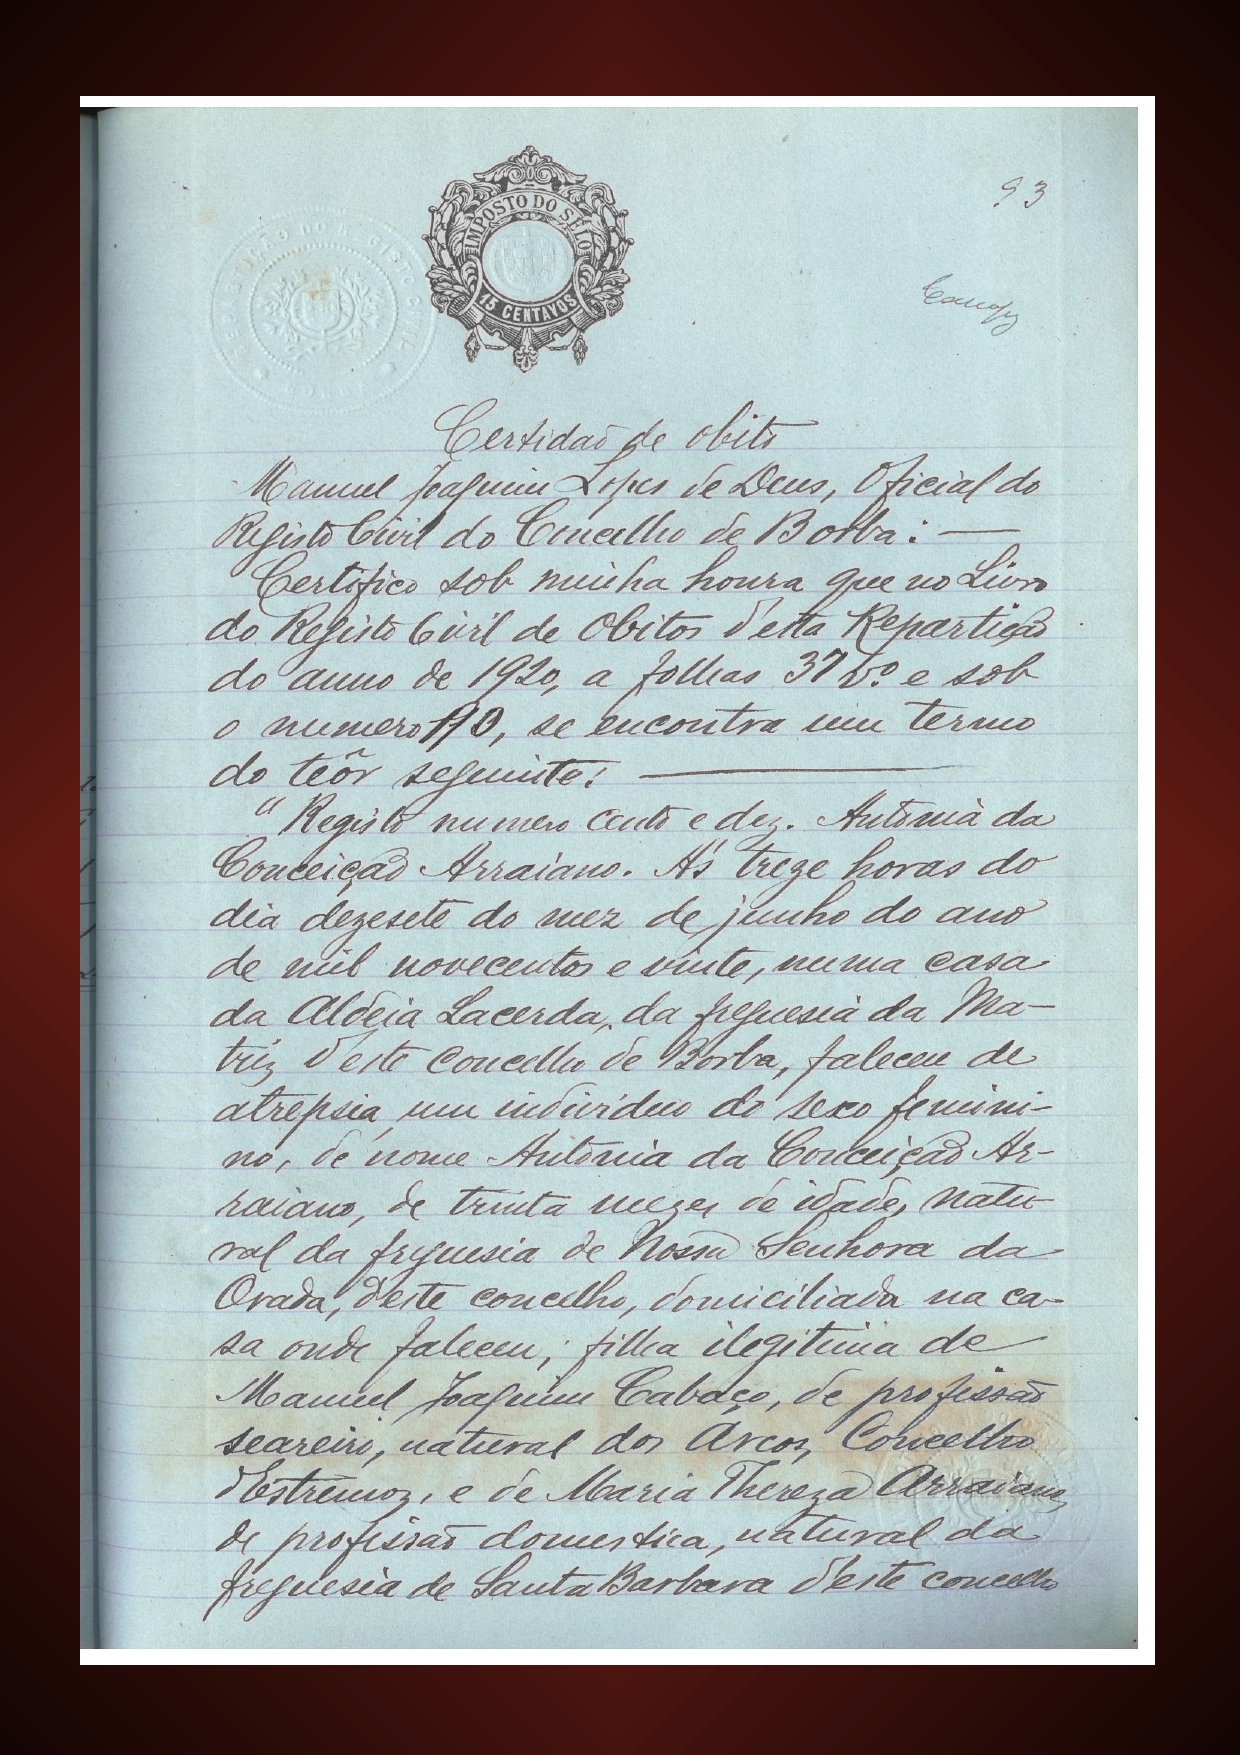 IMPOSTO DO SELO
15 CENTAVOS
93
Certidaõ de obito
Manuel Joaquim Lopes de Deus, Oficial do
Registo Civil do Concelho de Borba: —
Certifico sob minha honra que no Livro
do Registo Civil de Obitos d'esta Repartição
do anno de 1920, a folhas 37 vº. e sob
o numero 110, se encontra um termo
do teôr seguinte: —
"Registo numero cento e dez. Antonia da
Conceição Arraiano. Ás treze horas do
dia dezesete do mez de junho do ano
de mil novecentos e vinte, numa casa
da Aldeia Lacerda, da freguesia da Ma-
triz d'este concelho de Borba, faleceu de
atrepsia, um individuo do sexo femini-
no, de nome Antonia da Conceição Ar-
raiano, de trinta mezes de idade, natu-
ral da freguesia de Nossa Senhora da
Orada, d'este concelho, domiciliada na ca-
sa onde faleceu; filha ilegitima de
Manuel Joaquim Cabaço, de profissão
seareiro, natural dos Arcos, Concelho
d'Estremoz, e de Maria Thereza Arraiano,
de profissaõ domestica, natural da
freguesia de Santa Barbara d'este concelho